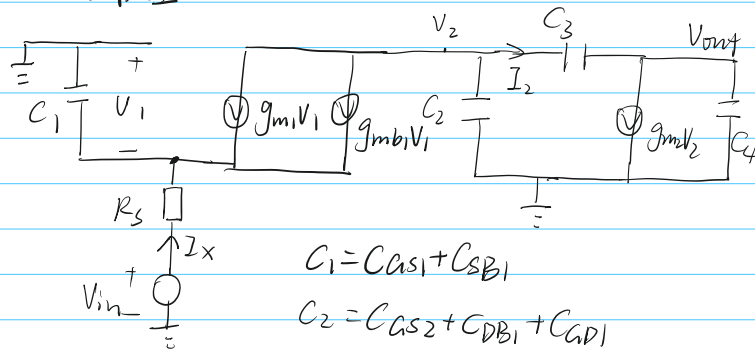 V2 C3 Vout
+ I2
C1 V1 gm1V1 gmb1V1 C2 gm2V2 C4
−
Rs
Ix
+
Vin −
C1 = CGS1 + CSB1
C2 = CGS2 + CDB1 + CGD1